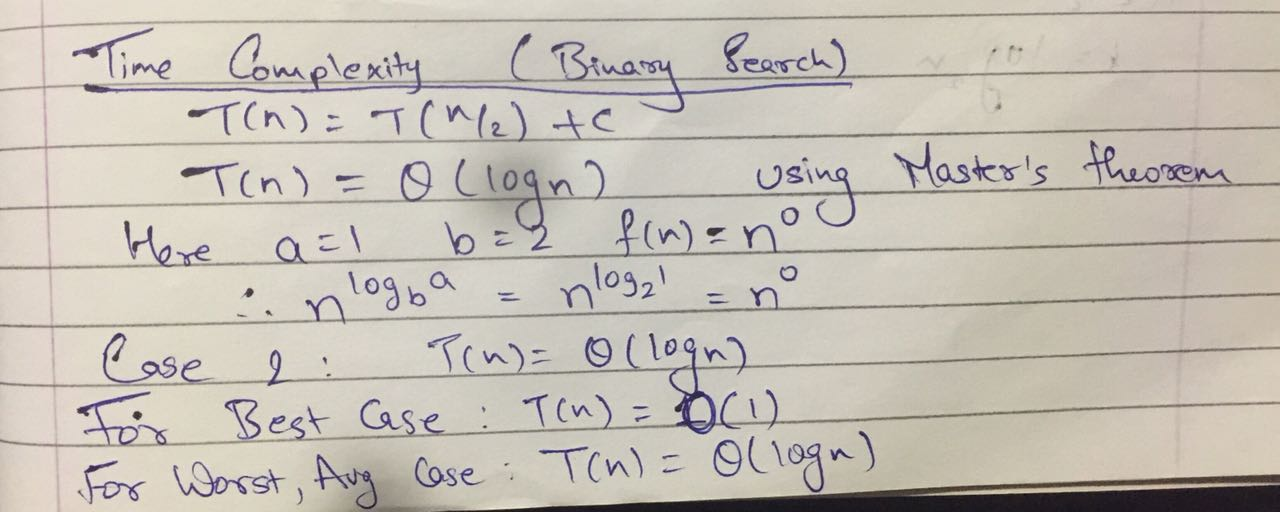 Time Complexity (Binary Search)
T(n) = T(n/2) + c
T(n) = Θ(logn) using Master's theorem
Here a=1 b=2 f(n) = n⁰
∴ n^(log_b a) = n^(log_2 1) = n⁰
Case 2 : T(n) = Θ(logn)
For Best Case : T(n) = O(1)
For Worst, Avg Case : T(n) = Θ(logn)